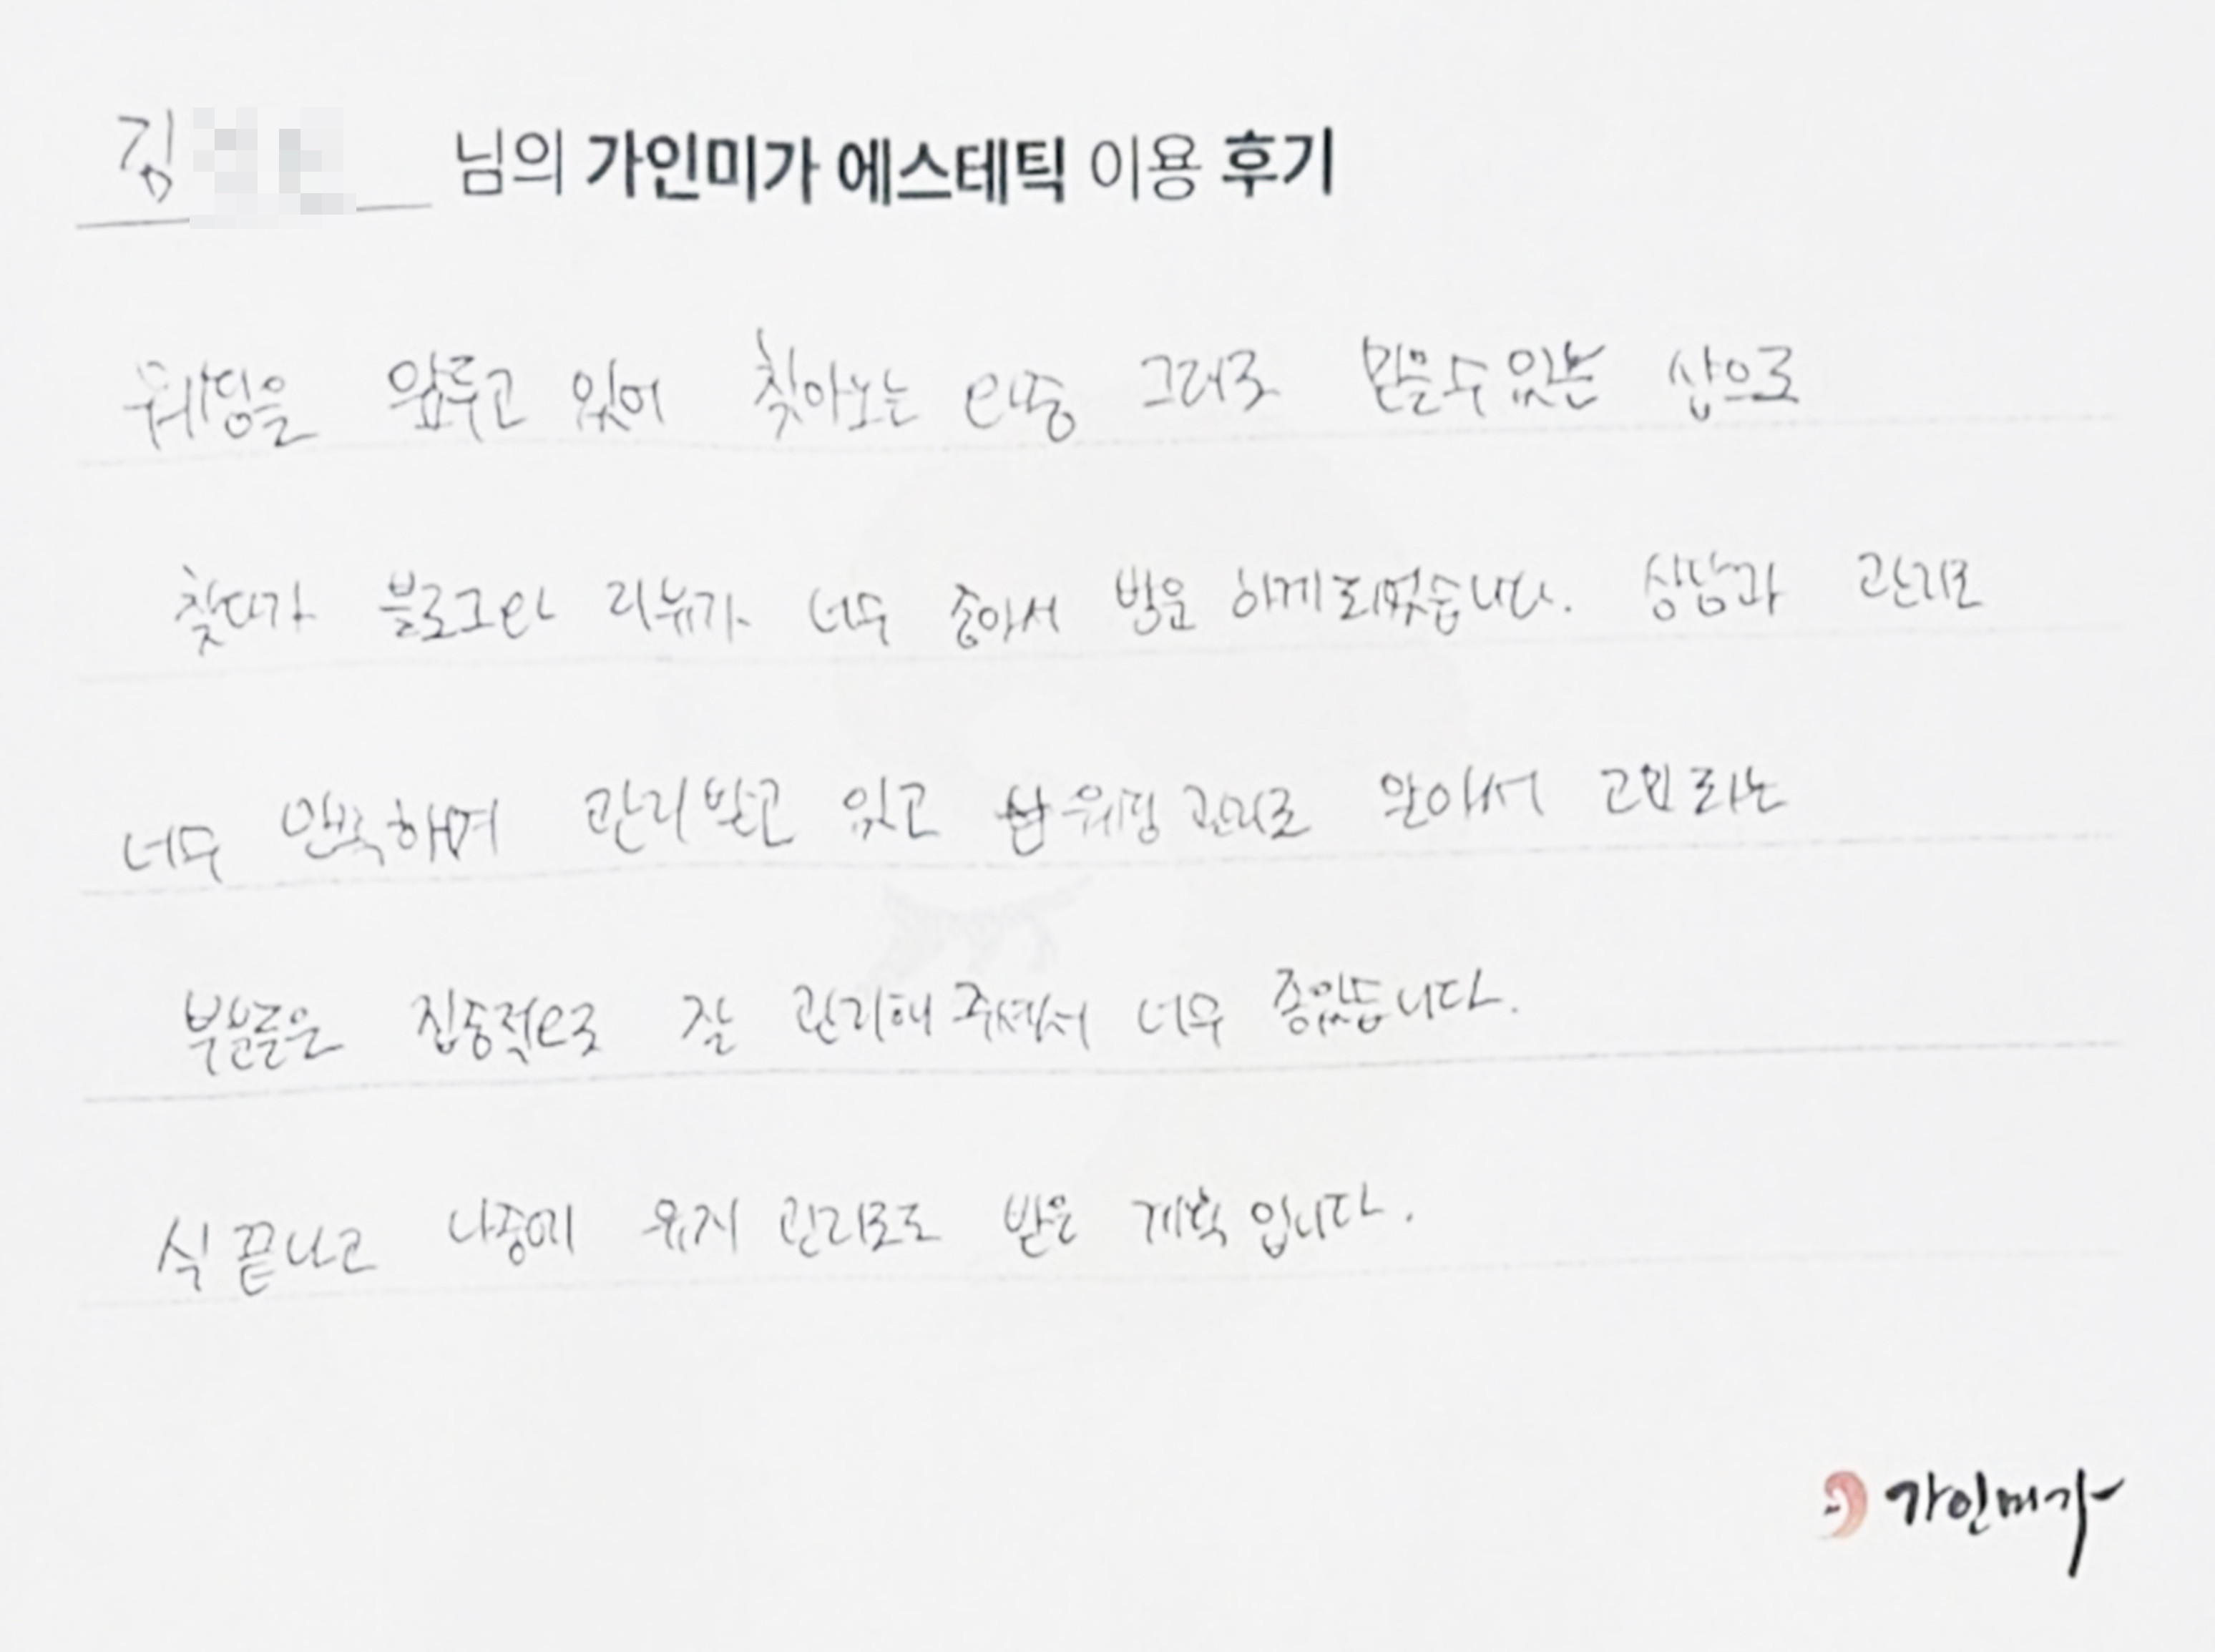 김 님의 가인미가 에스테틱 이용 후기
웨딩을 앞두고 있어 찾아보는 믿을수있는 샵으로
찾다가 블로그와 리뷰가 너무 좋아서 방문 하게되었습니다. 상담과 관리도
너무 만족하며 관리받고 있고 웨딩관리로 알아서 고민되는
부분들은 집중적으로 잘 관리해 주셔서 너무 좋았습니다.
식 끝나고 나중에 유지 관리로도 받을 계획 입니다.
가인미가